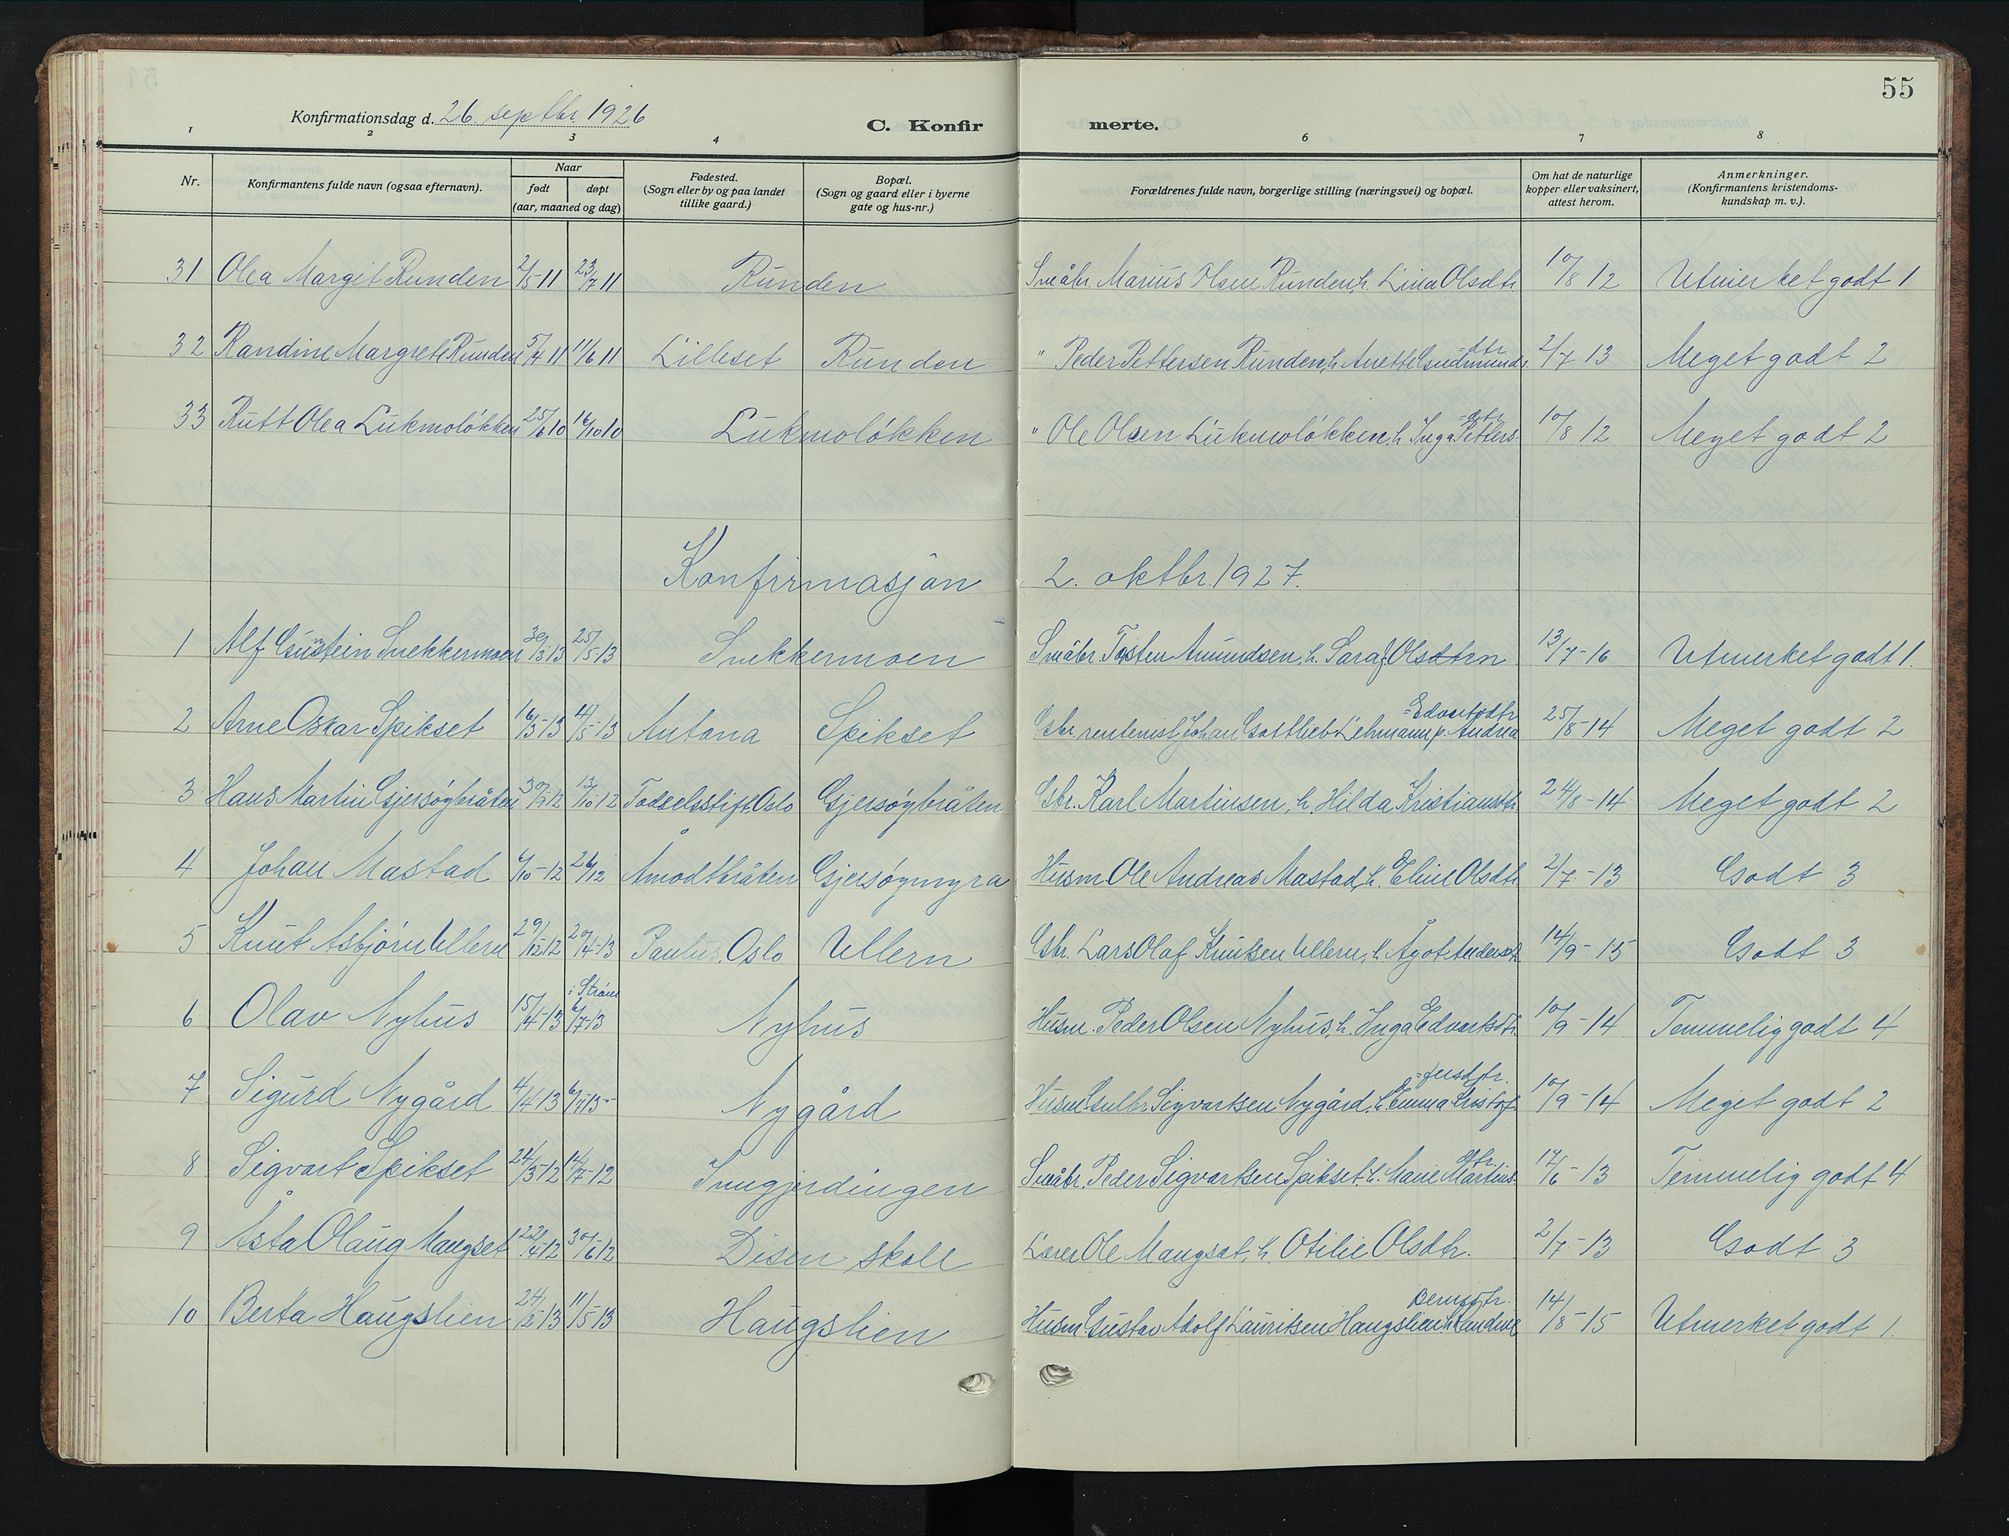 55
Konfirmationsdag d. 26. septbr 1926
C. Konfir merte.
1 2 3 4 6 7 8
Nr. Konfirmantens fulde navn (ogsaa efternavn). Naar født døpt (aar, maaned og dag) Fødested. (Sogn eller by og paa landet tillike gaard.) Bopæl. (Sogn og gaard eller i byerne gate og hus-nr.) Forældrenes fulde navn, borgerlige stilling (næringsvei) og bopæl. Om hat de naturlige kopper eller vaksinert, attest herom. Anmerkninger. (Konfirmantens kristendoms-kundskap m. v.).
31 Olea Margit Runden 2/5 11 23/7 11 Runden Småbr. Marius Olsen Runden, h. Lina Olsdtr 10/8 12 Utmerket godt 1
32 Randine Margrete Runden 5/4 11 11/6 11 Lilleset Runden " Peder Pettersen Runden, h. Anette Gudmunds-dtr 2/7 13 Meget godt 2
33 Rutt Olea Lukmoløkken 25/6 10 16/10 10 Lukmoløkken " Ole Olsen Lukmoløkken, h. Inga Petters-dtr 10/8 12 Meget godt 2
Konfirmasjon 2. oktbr. 1927.
1 Alf Gunstein Snekkermoen 30/3 13 25/5 13 Snekkermoen Småbr. Torsten Amundsen, h. Sara Olsdtr 13/7-16 Utmerket godt 1.
2 Arne Oskar Spikset 16/3-13 4/5-13 Antona Spikset Gbr. rentenist Johan Gottlieb Lehmann p. Andrea Edvartsdtr 25/8-14 Meget godt 2
3 Hans Martin Gjersøybråten 30/9-12 13/10-12 Fødselsstift. Oslo Gjersøybråten Gbr. Karl Martinsen, h. Hilda Kristiansdtr. 24/8-14 Meget godt 2
4 Johan Mastad 6/10-12 26/12 Åmodtbråten Gjersøymyra Husm Ole Andreas Mastad, h. Eline Olsdtr 2/7-13 Godt 3
5 Knut Asbjørn Ullern 29/12-12 20/4-13 Paulus, Oslo Ullern Gbr. Lars Olaf Knutsen Ullern, h. Ågot Andersdtr 14/9-15 Godt 3
6 Olav Nyhus 15/4-13 i Strøm 6/7-13 Nyhus Husm. Peder Olsen Nyhus, h. Inga Edvartsdtr. 10/9-14 Temmelig godt 4
7 Sigurd Nygård 4/4 13 6/7 13- Nygård Husm Gulbr. Sigvartsen Nygård, h. Emma Kristof-fersdtr. 10/9-14 Meget godt 2
8 Sigvart Spikset 24/3-12 14/7-12 Inngjerdingen Småbr. Peder Sigvartsen Spikset, h. Marie Martins-dtr. 14/6-13 Temmelig godt 4
9 Åsta Olaug Maugset 22/4-12 30/6 12 Disen skole Lærer Ole Maugset, h. Otilie Olsdtr. 2/7-13 Godt 3
10 Berta Haugslien 24/2-13 11/5-13 Haugslien Husm Gustav Adolf Lauritsen Haugslien Berntsdtr. 14/8-15 Utmerket godt 1.